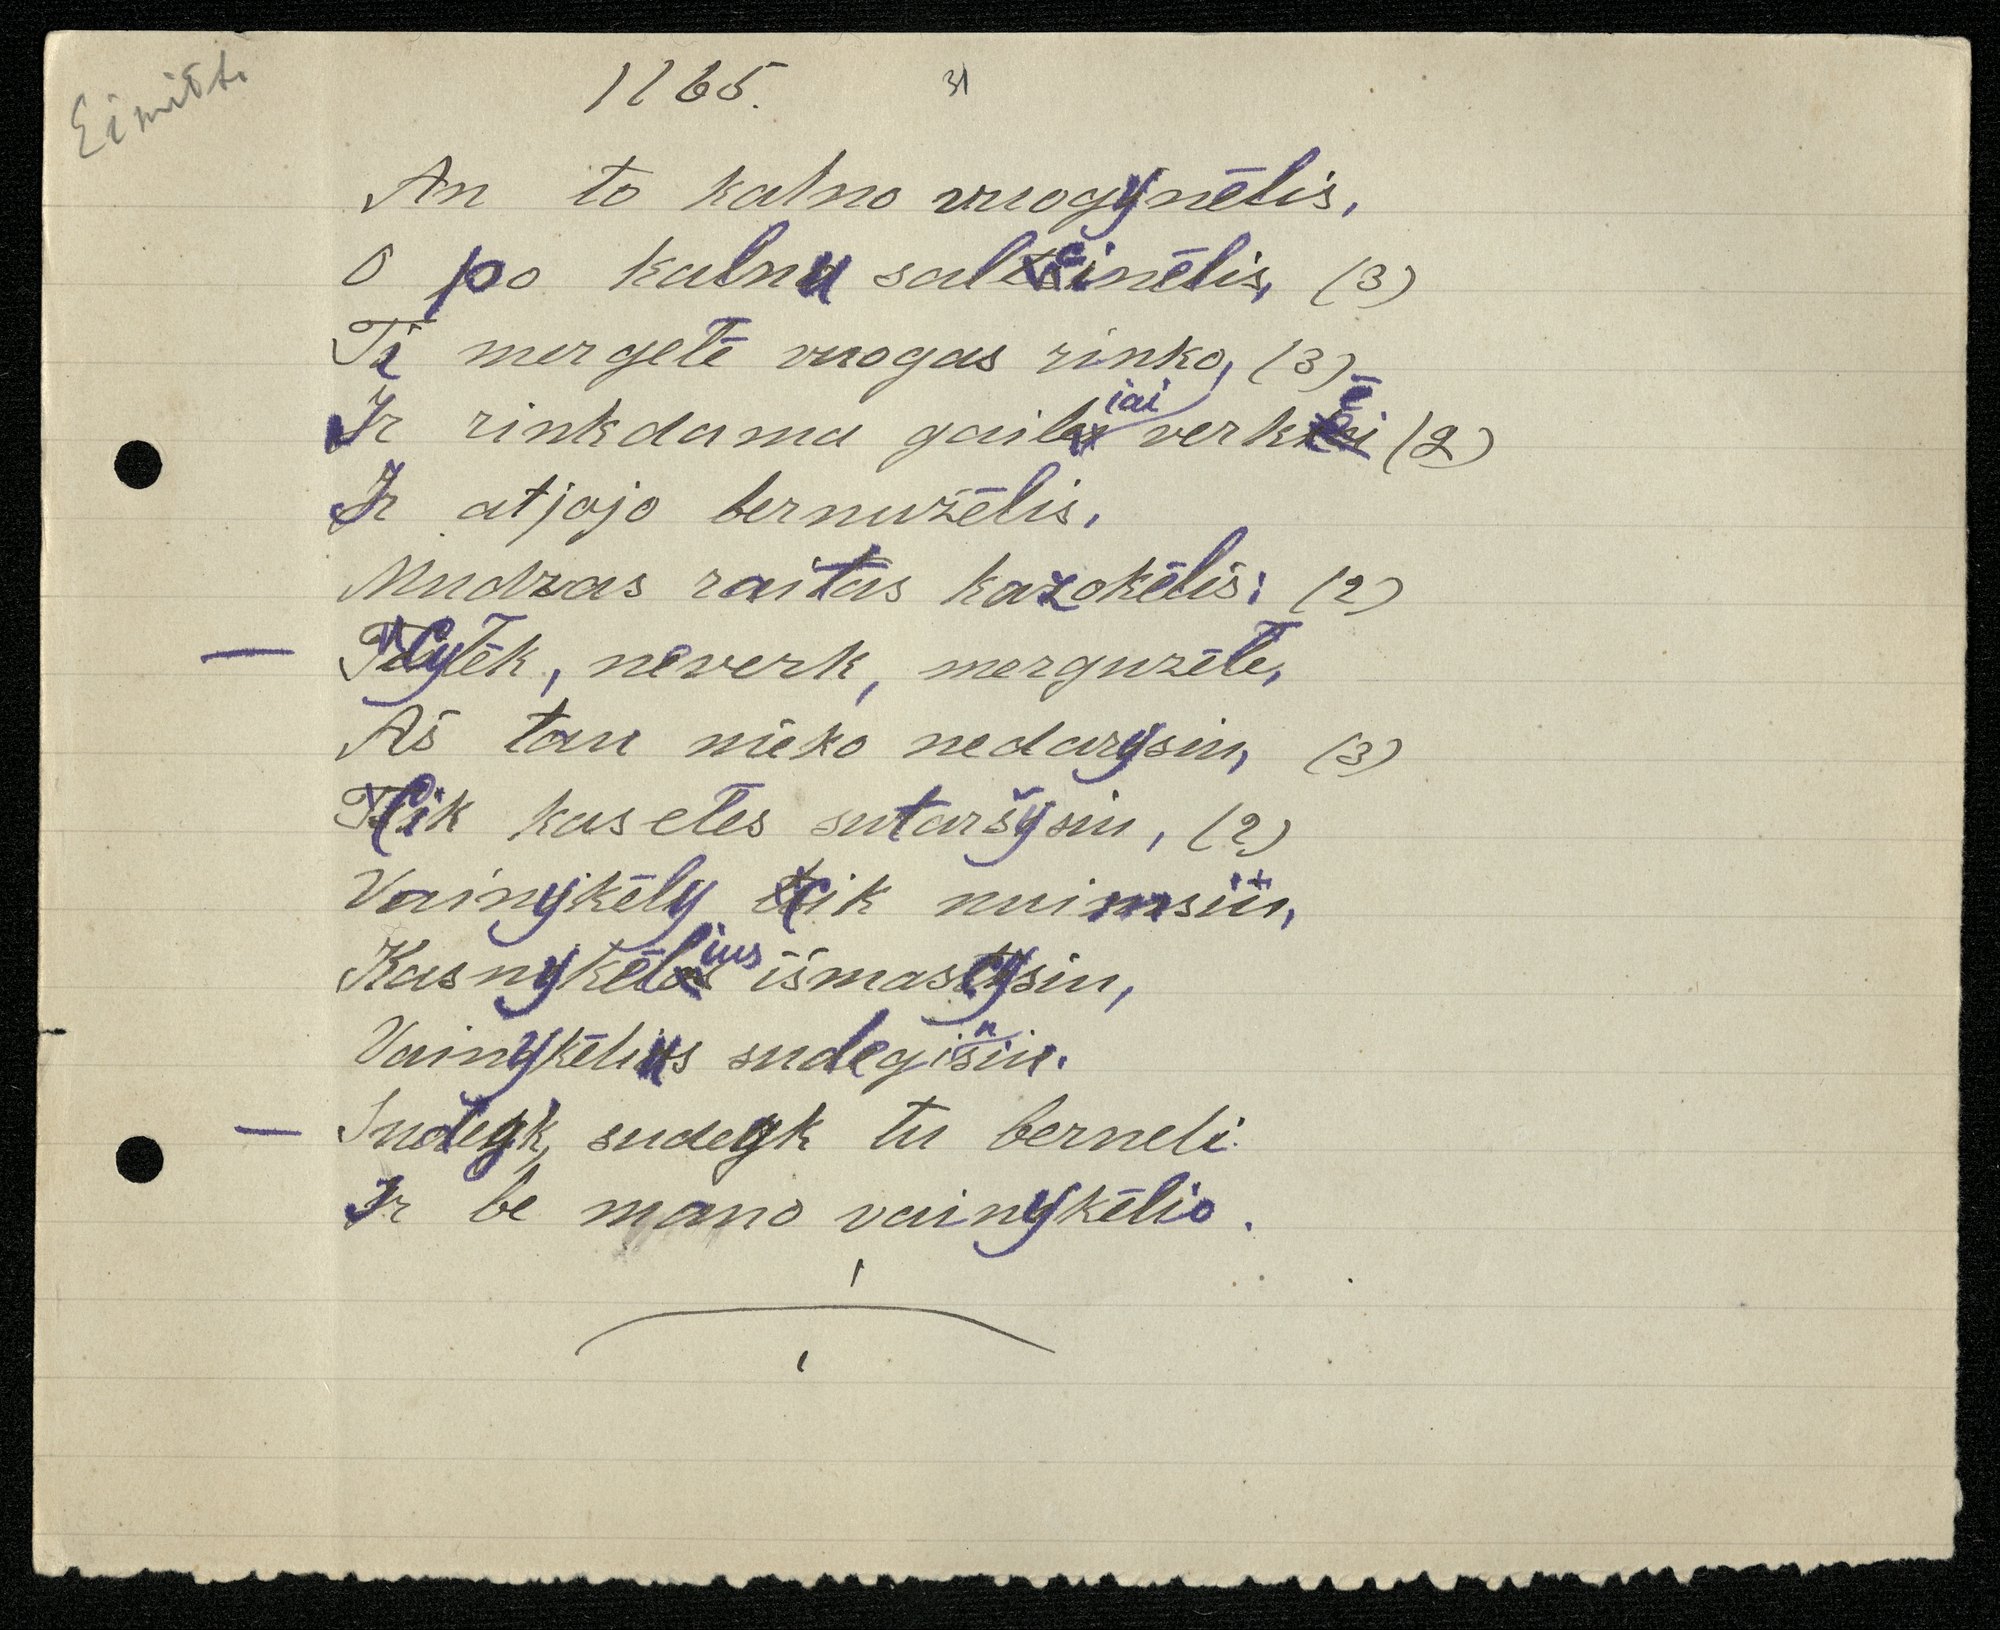 Eimišk.
1165. 31
An to kalno vuogynėlis,
O po kalnu salcinėlis, (3)
Ti mergetė vuogas rinko, (3)
Ir rinkdama gailiai verkė (2)
Ir atjojo bernužėlis,
Mudras raitas kazokėlis: (2)
— Cylėk, neverk, mergužėle,
Aš tau nieko nedarysiu, (3)
Cik kasetes sutaršysiu, (2)
Vainykėly cik nuimsiu,
Kasnykėlius išmascysiu,
Vainykėlius sudeginsiu.
— Sudegk, sudegk tu berneli
Ir be mano vainykėlio.